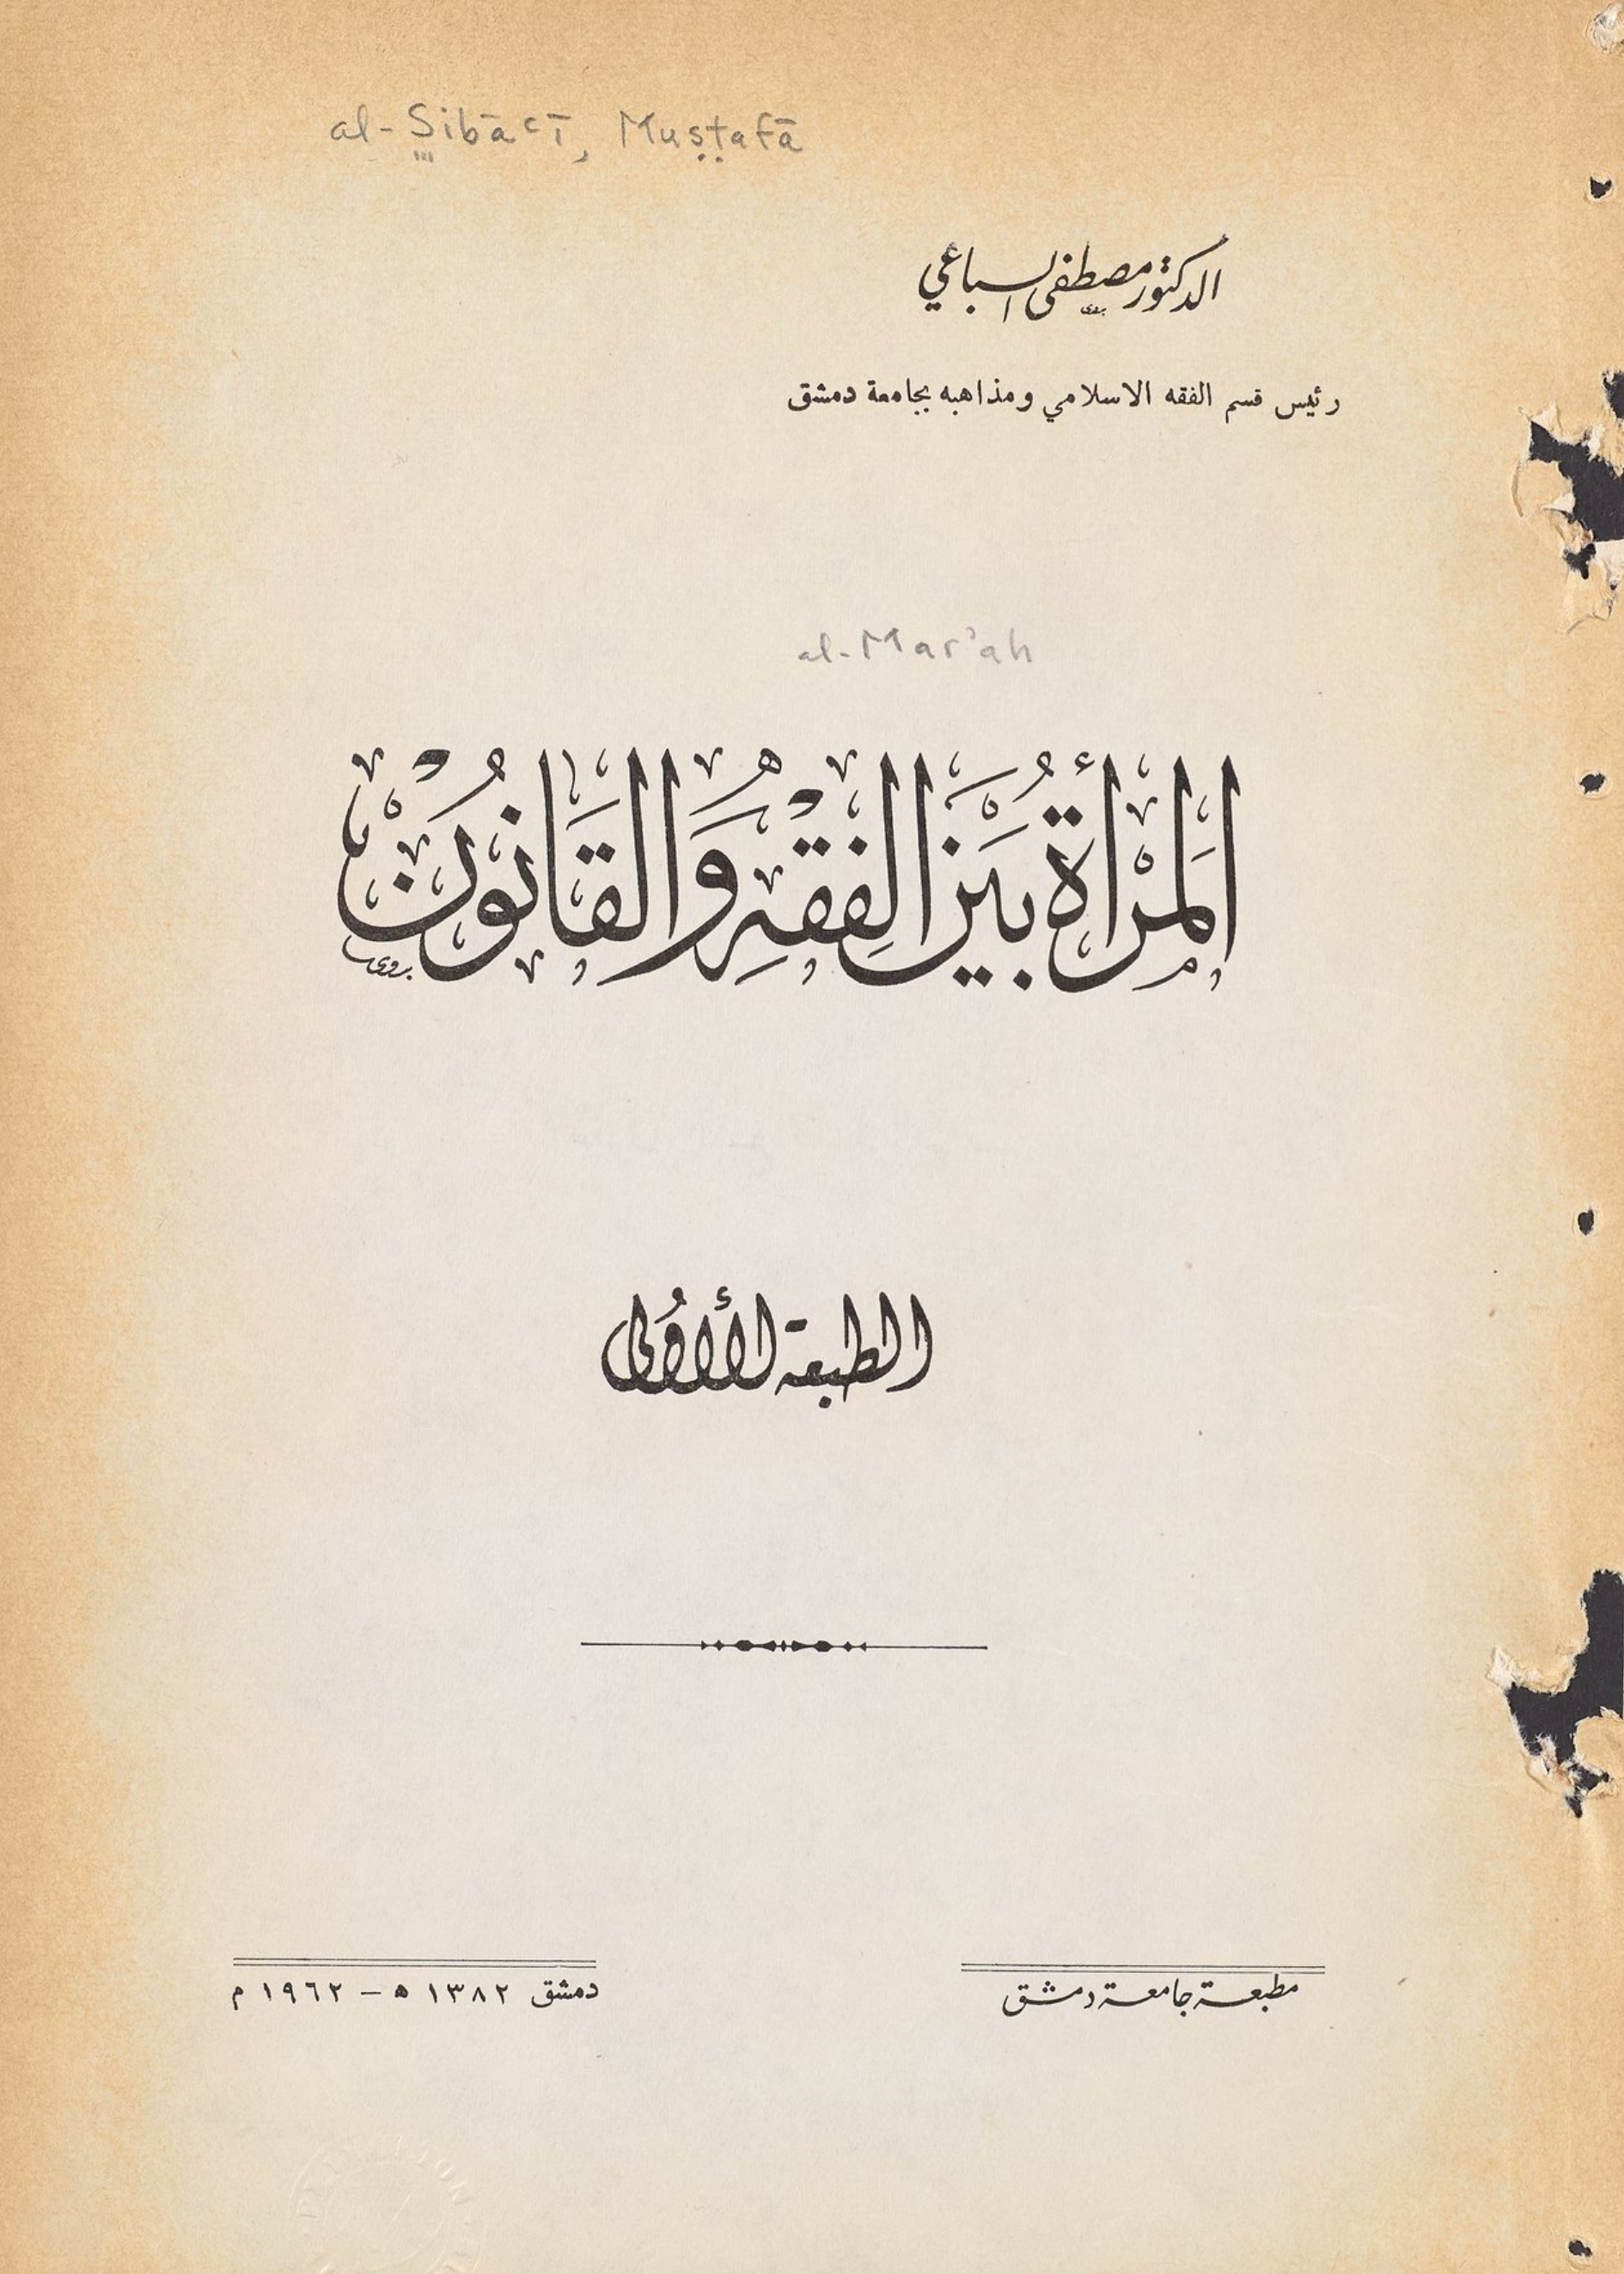 al-Sibāʿī, Muṣṭafā
الدكتور مصطفى السباعي
رئيس قسم الفقه الاسلامي ومذاهبه بجامعة دمشق
al-Mar'ah
اَلمَرْأَةُ بَيْنَ الفِقْهِ وَالقَانُونْ
بدوي
الطبعة الأُولى
مطبعة جامعة دمشق
دمشق ١٣٨٢ ه – ١٩٦٢ م